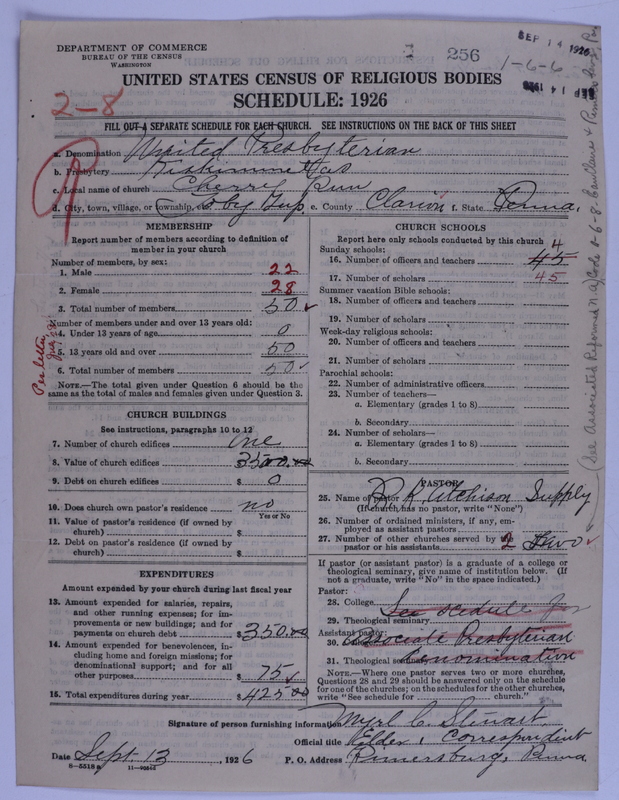 DEPARTMENT OF COMMERCE
BUREAU OF THE CENSUS
WASHINGTON
1 256
SEP 14 1926
1-6-6
SEP 14 1926
UNITED STATES CENSUS OF RELIGIOUS BODIES
2-8
SCHEDULE: 1926
FILL OUT A SEPARATE SCHEDULE FOR EACH CHURCH. SEE INSTRUCTIONS ON THE BACK OF THIS SHEET
a. Denomination United Presbyterian
b. Presbytery Kiskiminetas
c. Local name of church Cherry Run
d. City, town, village, or township, Toby Twp e. County Clarion f. State Penna.
MEMBERSHIP
Report number of members according to definition of
member in your church
Number of members, by sex:
1. Male 22
2. Female 28
3. Total number of members 50
Number of members under and over 13 years old:
4. Under 13 years of age 0
5. 13 years old and over 50
6. Total number of members 50
Per letter
NOTE.—The total given under Question 6 should be the
same as the total of males and females given under Question 3.
CHURCH BUILDINGS
See instructions, paragraphs 10 to 12
7. Number of church edifices one
8. Value of church edifices $ 3500.00
9. Debt on church edifices $ 0
10. Does church own pastor's residence? no
Yes or No
11. Value of pastor's residence (if owned by
church) $
12. Debt on pastor's residence (if owned by
church) $
EXPENDITURES
Amount expended by your church during last fiscal year
13. Amount expended for salaries, repairs,
and other running expenses; for im-
provements or new buildings; and for
payments on church debt $ 350.00
14. Amount expended for benevolences, in-
cluding home and foreign missions; for
denominational support; and for all
other purposes $ 75
15. Total expenditures during year $ 425 00
CHURCH SCHOOLS
Report here only schools conducted by this church
Sunday schools: 4
16. Number of officers and teachers 45
17. Number of scholars 45
Summer vacation Bible schools:
18. Number of officers and teachers
19. Number of scholars
Week-day religious schools:
20. Number of officers and teachers
21. Number of scholars
Parochial schools:
22. Number of administrative officers
23. Number of teachers—
a. Elementary (grades 1 to 8)
b. Secondary
24. Number of scholars—
a. Elementary (grades 1 to 8)
b. Secondary
PASTOR
25. Name of pastor R. K. Atchison Supply
(If church has no pastor, write "None")
26. Number of ordained ministers, if any, em-
ployed as assistant pastors
27. Number of other churches served by
pastor or his assistants 2 Two
If pastor (or assistant pastor) is a graduate of a college or
theological seminary, give name of institution below. (If
not a graduate, write "No" in the space indicated.)
Pastor:
28. College See scedule for
29. Theological seminary
Assistant pastor:
30. College Associate Presbyterian
31. Theological seminary Denomination
NOTE.—Where one pastor serves two or more churches,
Questions 28 and 29 should be answered only on the schedule
for one of the churches; on the schedules for the other churches,
write "See schedule for church."
Signature of person furnishing information Myrl C. Stewart
Official title Elder, Correspondent
Date Sept. 13, 1926 P. O. Address Rimersburg, Penna
8-5518a 11-90646